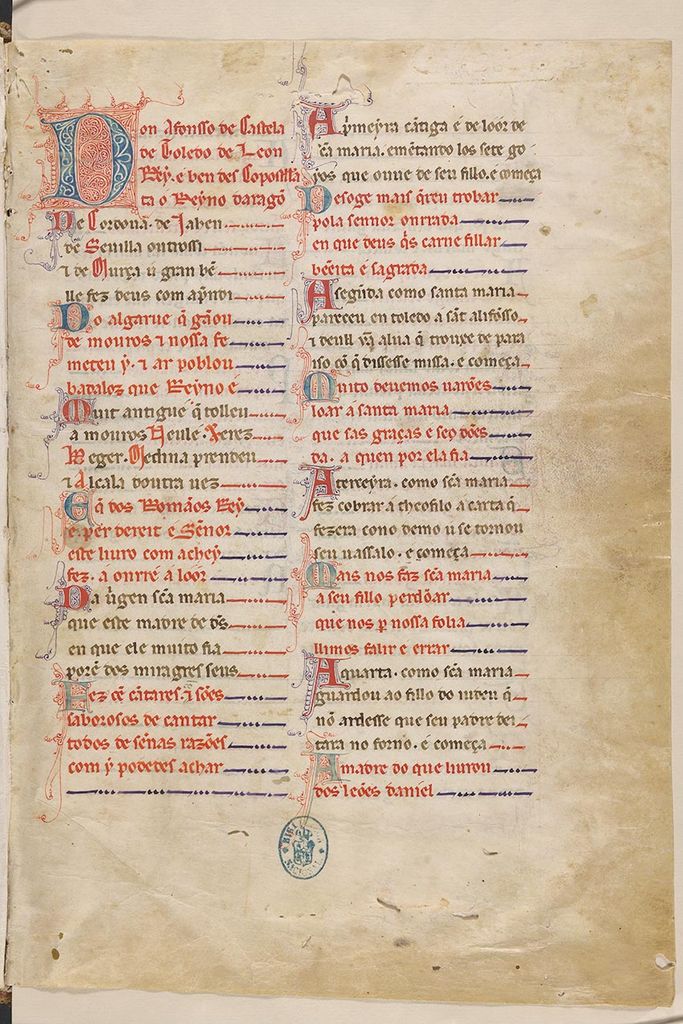 Don Afonsso de Castela
de Toledo de Leon
Rey. e ben des Conpostela
ta o Reyno daragō
De Cordoua. de Jahen
de Seuilla outrossi
⁊ de Murça u gran bē
lle fez deus com ap̄ndi
Do algarue q̄ gāou
de mouros ⁊ nossa fe
meteu y. ⁊ ar poblou
badaloz que Reyno é
Muit antigue q̄ tolleu
a mouros Neule. Xerez
Beger. Medina prendeu
⁊ Alcala doutra uez
Eq̄ dos Romāos Rey
é. per dereit e Sēnor
este liuro com achey
fez. á onrré a loor
Da u̓gen sc̄a maria
que este madre de d̄s
en que ele muito fia
porē dos miragres seus
Fez cē cātares. ⁊ sōes
saborosos de cantar
todos de sēnas razōes
com y podedes achar
A p̓meyra cātiga é de loor de
sc̄a maria. emētando los sete go
yos que ouue de seu fillo. e comeca
Desoge mais q̓reu trobar
pola sennor onrrada
en que deus q̓s carne fillar
bēeita e sagrada
A segūda como santa maria
pareceu en toledo a sāt alifōsso
⁊ deull hūa alua q̄ trouxe de para
iso cō q̄ dissesse missa. e começa
Muito deuemos uarōes
loar á santa maria
que sas graças e seos dōes
da. a quen por ela fia
A terceyra. como sc̄a maria
fez cobrar á theofilo a carta q̄
fezera cono demo u se tornou
seu uassalo. e começa
Mais nos faz sc̄a maria
a seu fillo perdōar
que nos p nossa folia
llimos falir e errar
A quarta. como sc̄a maria
guardou ao fillo do iudeu q̄
nō ardesse que seu padre dei
tara no forno. e começa
A madre do que liurou
dos leōes daniel